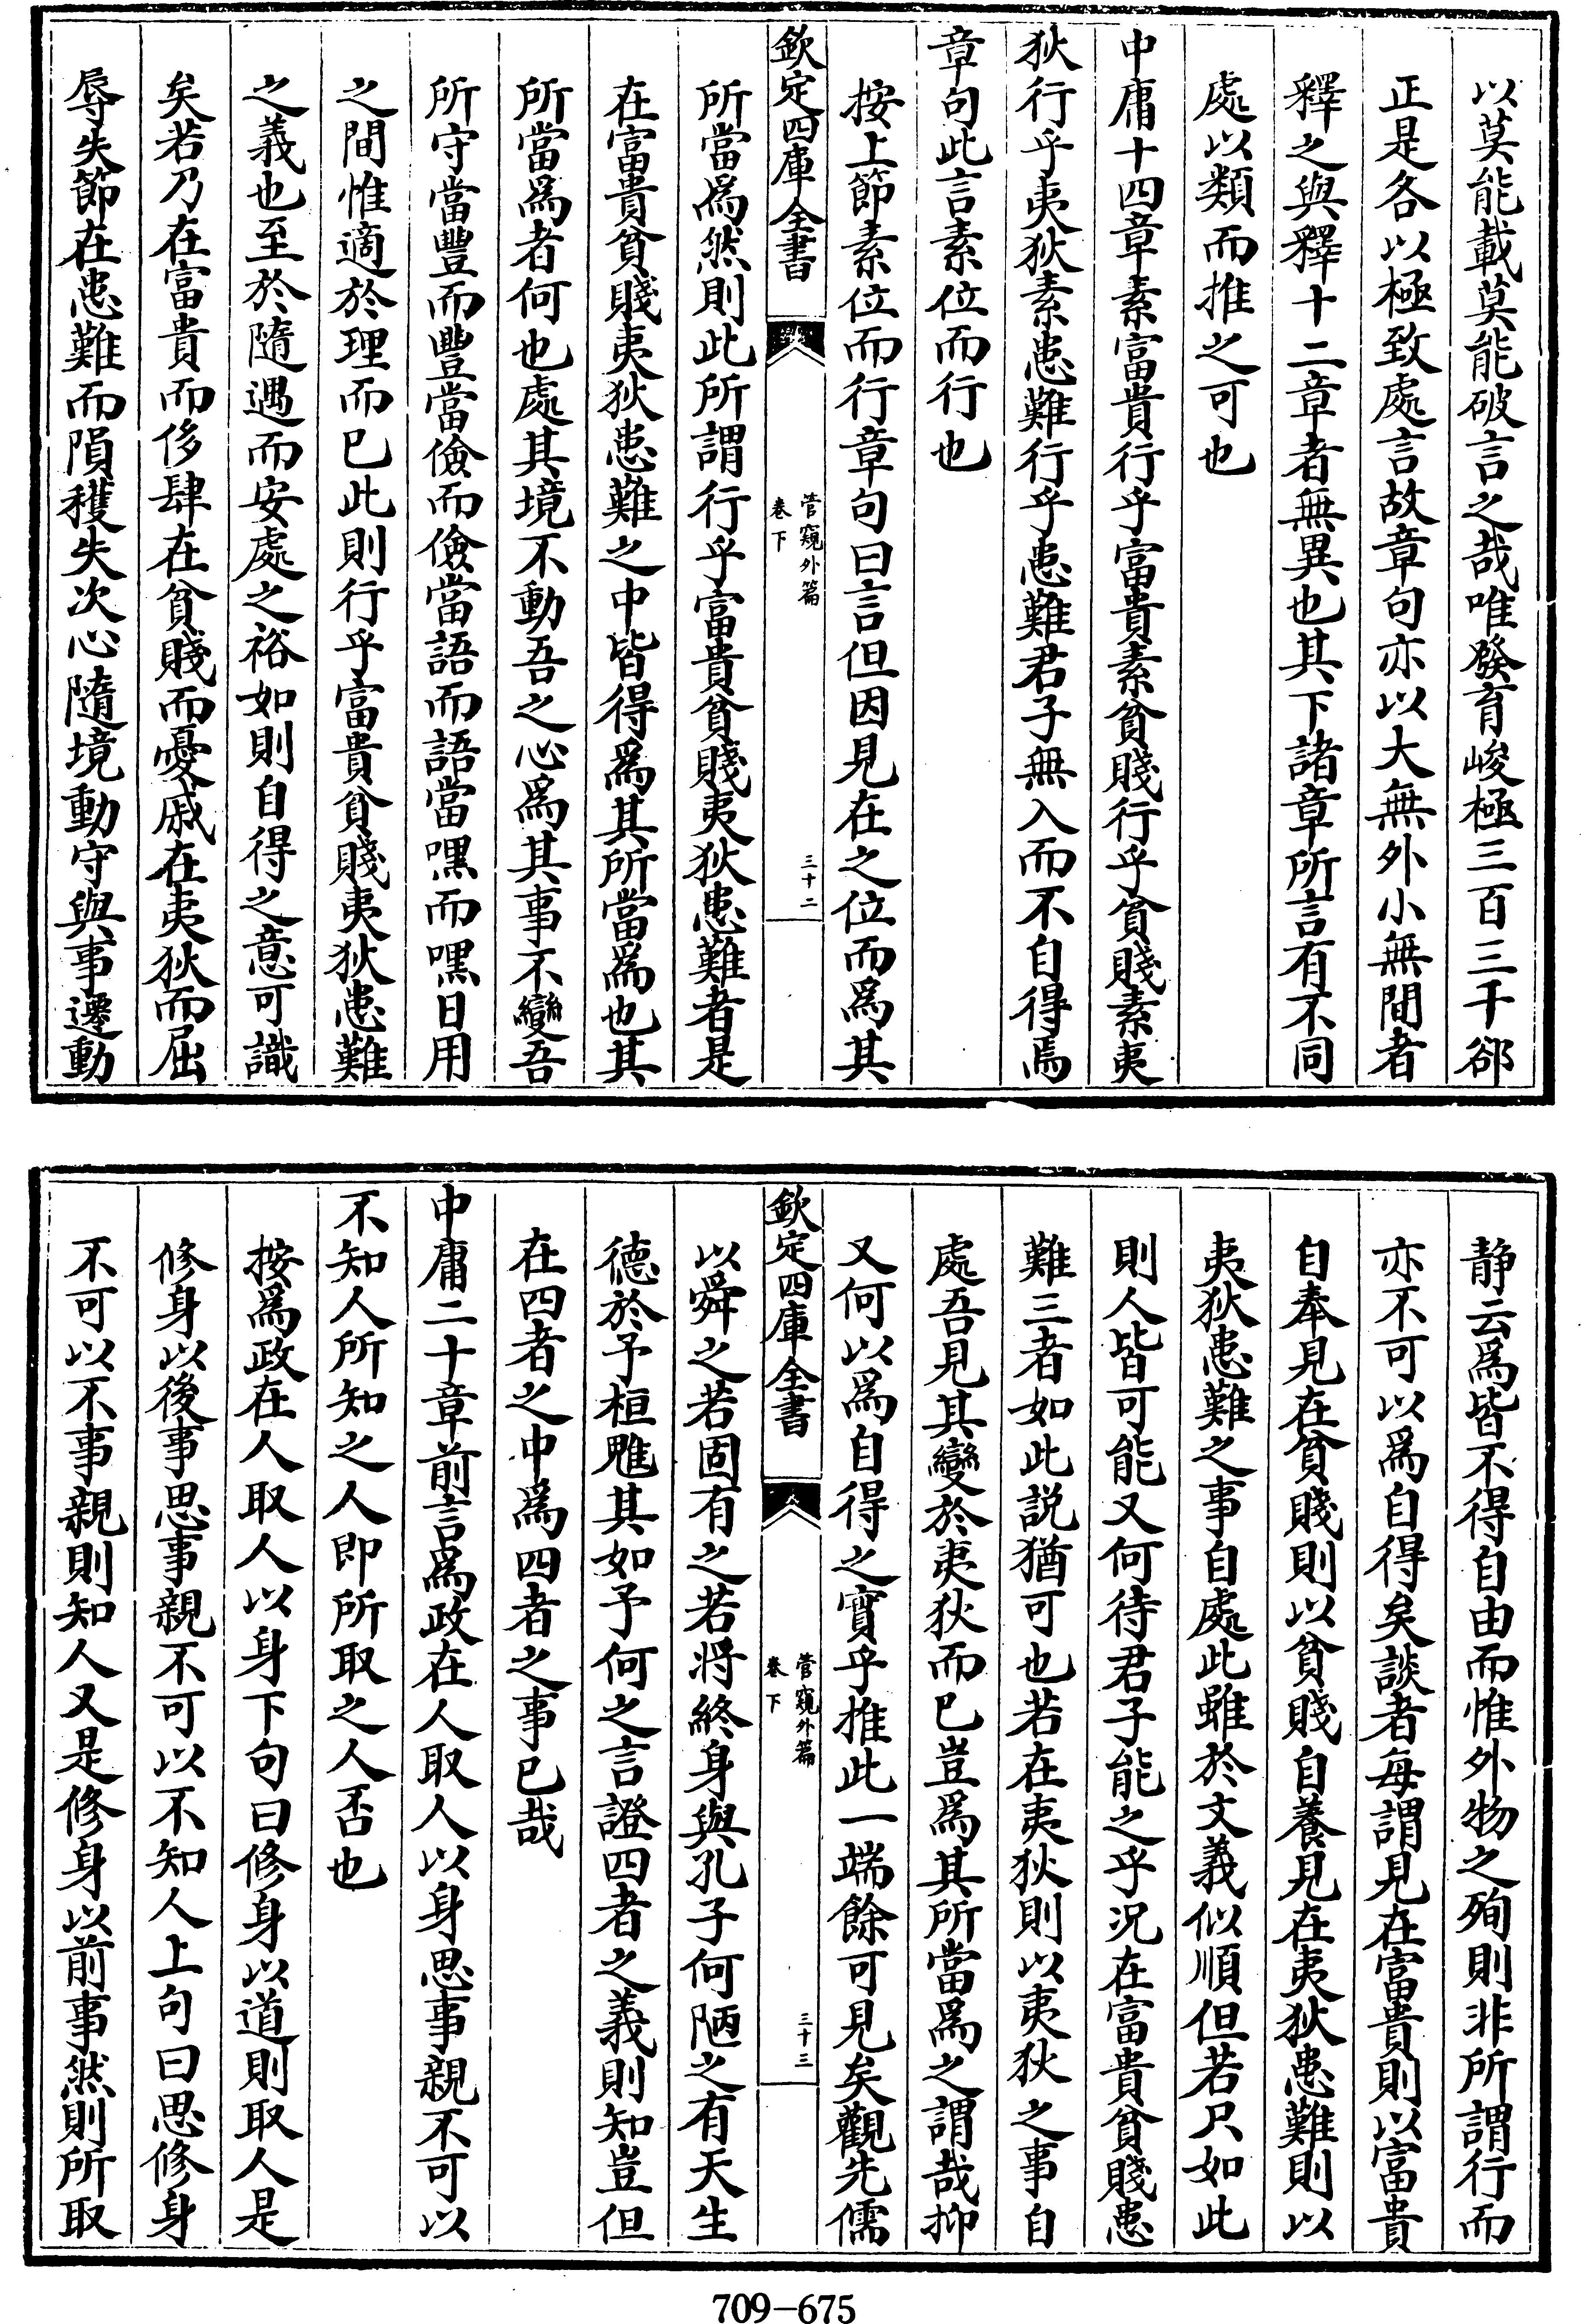 以莫能載莫能破言之哉唯發育峻極三百三千郤
正是各以極致處言故章句亦以大無外小無間者
釋之與釋十二章者無異也其下諸章所言有不同
處以類而推之可也
中庸十四章素富貴行乎富貴素貧賤行乎貧賤素夷
狄行乎夷狄素患難行乎患難君子無入而不自得焉
章句此言素位而行也
按上節素位而行章句曰言但因見在之位而為其
欽定四庫全書
管窺外篇
卷下
三十二
所當為然則此所謂行乎富貴貧賤夷狄患難者是
在富貴貧賤夷狄患難之中皆得為其所當為也其
所當為者何也處其境不動吾之心為其事不變吾
所守當豐而豐當儉而儉當語而語當嘿而嘿日用
之間惟適於理而已此則行乎富貴貧賤夷狄患難
之義也至於隨遇而安處之裕如則自得之意可識
矣若乃在富貴而侈肆在貧賤而憂戚在夷狄而屈
辱失節在患難而隕穫失次心隨境動守與事遷動
静云為皆不得自由而惟外物之殉則非所謂行而
亦不可以為自得矣談者每謂見在富貴則以富貴
自奉見在貧賤則以貧賤自養見在夷狄患難則以
夷狄患難之事自處此雖於文義似順但若只如此
則人皆可能又何待君子能之乎况在富貴貧賤患
難三者如此説猶可也若在夷狄則以夷狄之事自
處吾見其變於夷狄而已豈為其所當為之謂哉抑
又何以為自得之實乎推此一端餘可見矣觀先儒
欽定四庫全書
管窺外篇
卷下
三十三
以舜之若固有之若將終身與孔子何陋之有天生
德於予桓魋其如予何之言證四者之義則知豈但
在四者之中為四者之事已哉
中庸二十章前言為政在人取人以身思事親不可以
不知人所知之人即所取之人否也
按為政在人取人以身下句曰修身以道則取人是
修身以後事思事親不可以不知人上句曰思修身
不可以不事親則知人又是修身以前事然則所取
709-675